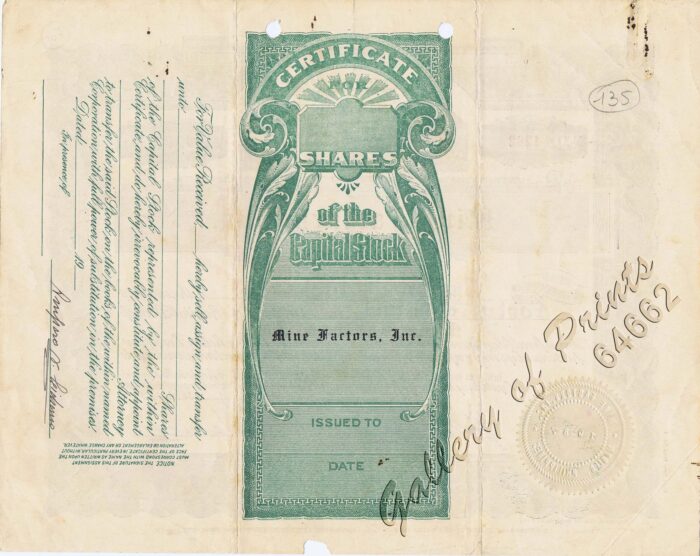 For Value Received, hereby sell, assign and transfer
unto
Shares
of the Capital Stock represented by the within
Certificate, and do hereby irrevocably constitute and appoint
Attorney
to transfer the said Stock on the books of the within named
Corporation with full power of substitution in the premises.
Dated 19
In presence of
NOTICE THE SIGNATURE OF THIS ASSIGNMENT
MUST CORRESPOND WITH THE NAME AS WRITTEN UPON THE
FACE OF THE CERTIFICATE IN EVERY PARTICULAR WITHOUT
ALTERATION OR ENLARGEMENT OR ANY CHANGE WHATEVER.
CERTIFICATE
FOR
SHARES
of the
Capital Stock
Mine Factors, Inc.
ISSUED TO
DATE
135
Gallery of Prints
64662